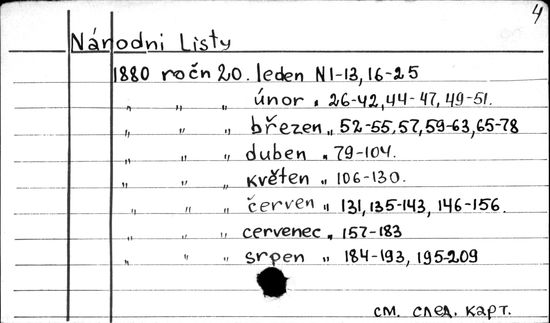 4
Národni Listy
1880 ročn 20. leden N1-13, 16-25
„ „ „ únor „ 26-42, 44-47, 49-51.
„ „ „ březen „ 52-55, 57, 59-63, 65-78
„ „ „ duben „ 79-104.
„ „ „ květen „ 106-130.
„ „ „ červen „ 131, 135-143, 146-156.
„ „ „ cervenec „ 157-183
„ „ „ srpen „ 184-193, 195-209
см. след. карт.